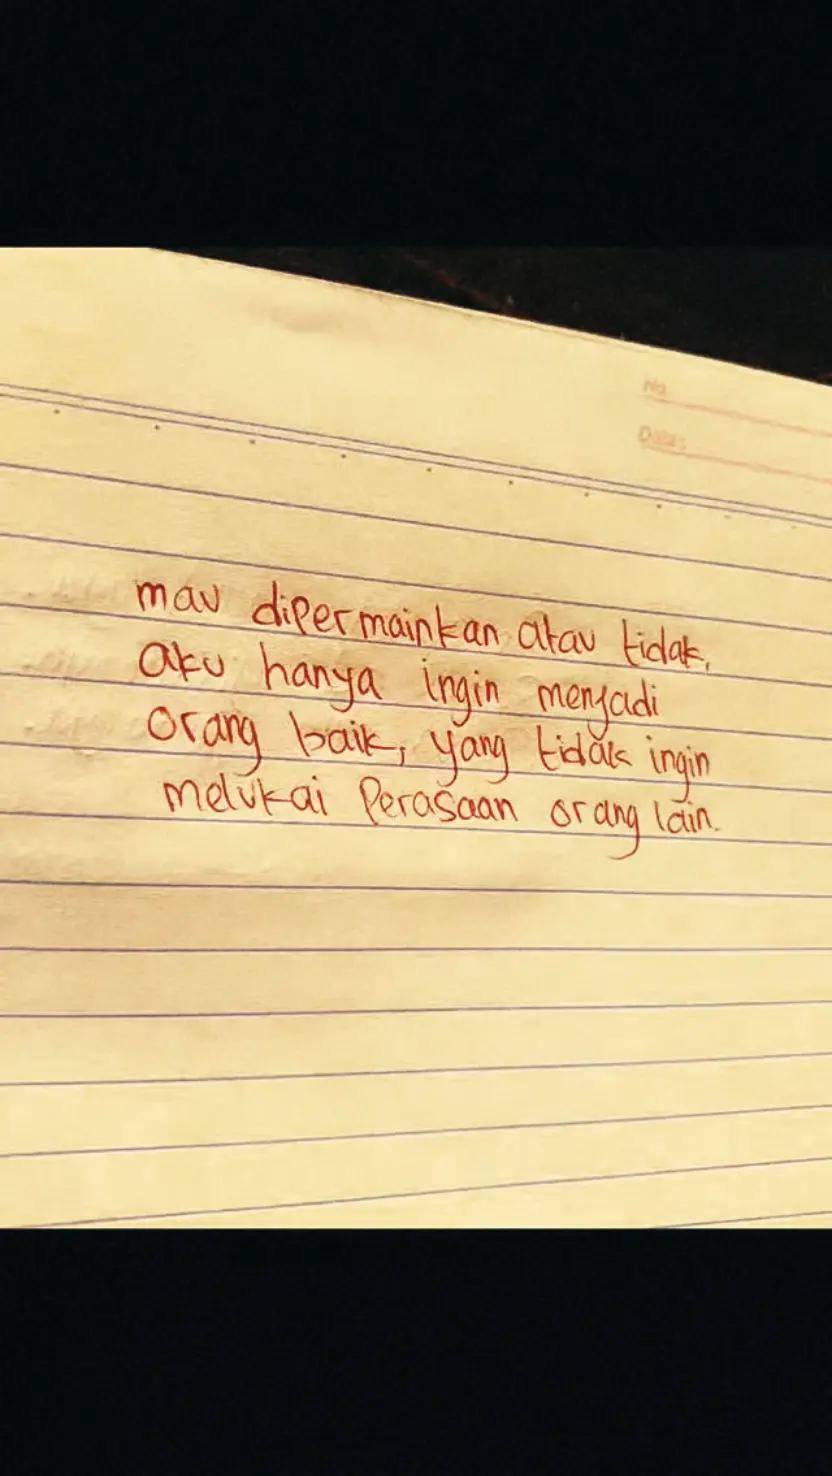 No
Date:
mau dipermainkan atau tidak,
aku hanya ingin menjadi
orang baik, yang tidak ingin
melukai Perasaan orang lain.